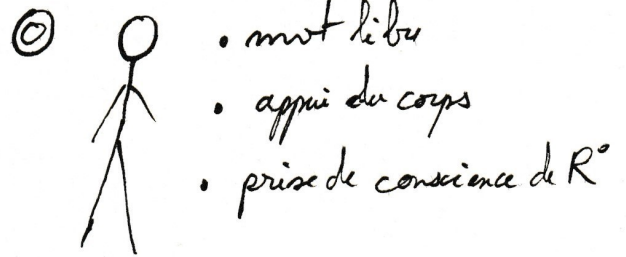 • mvt libre
• appui du corps
• prise de conscience de R°